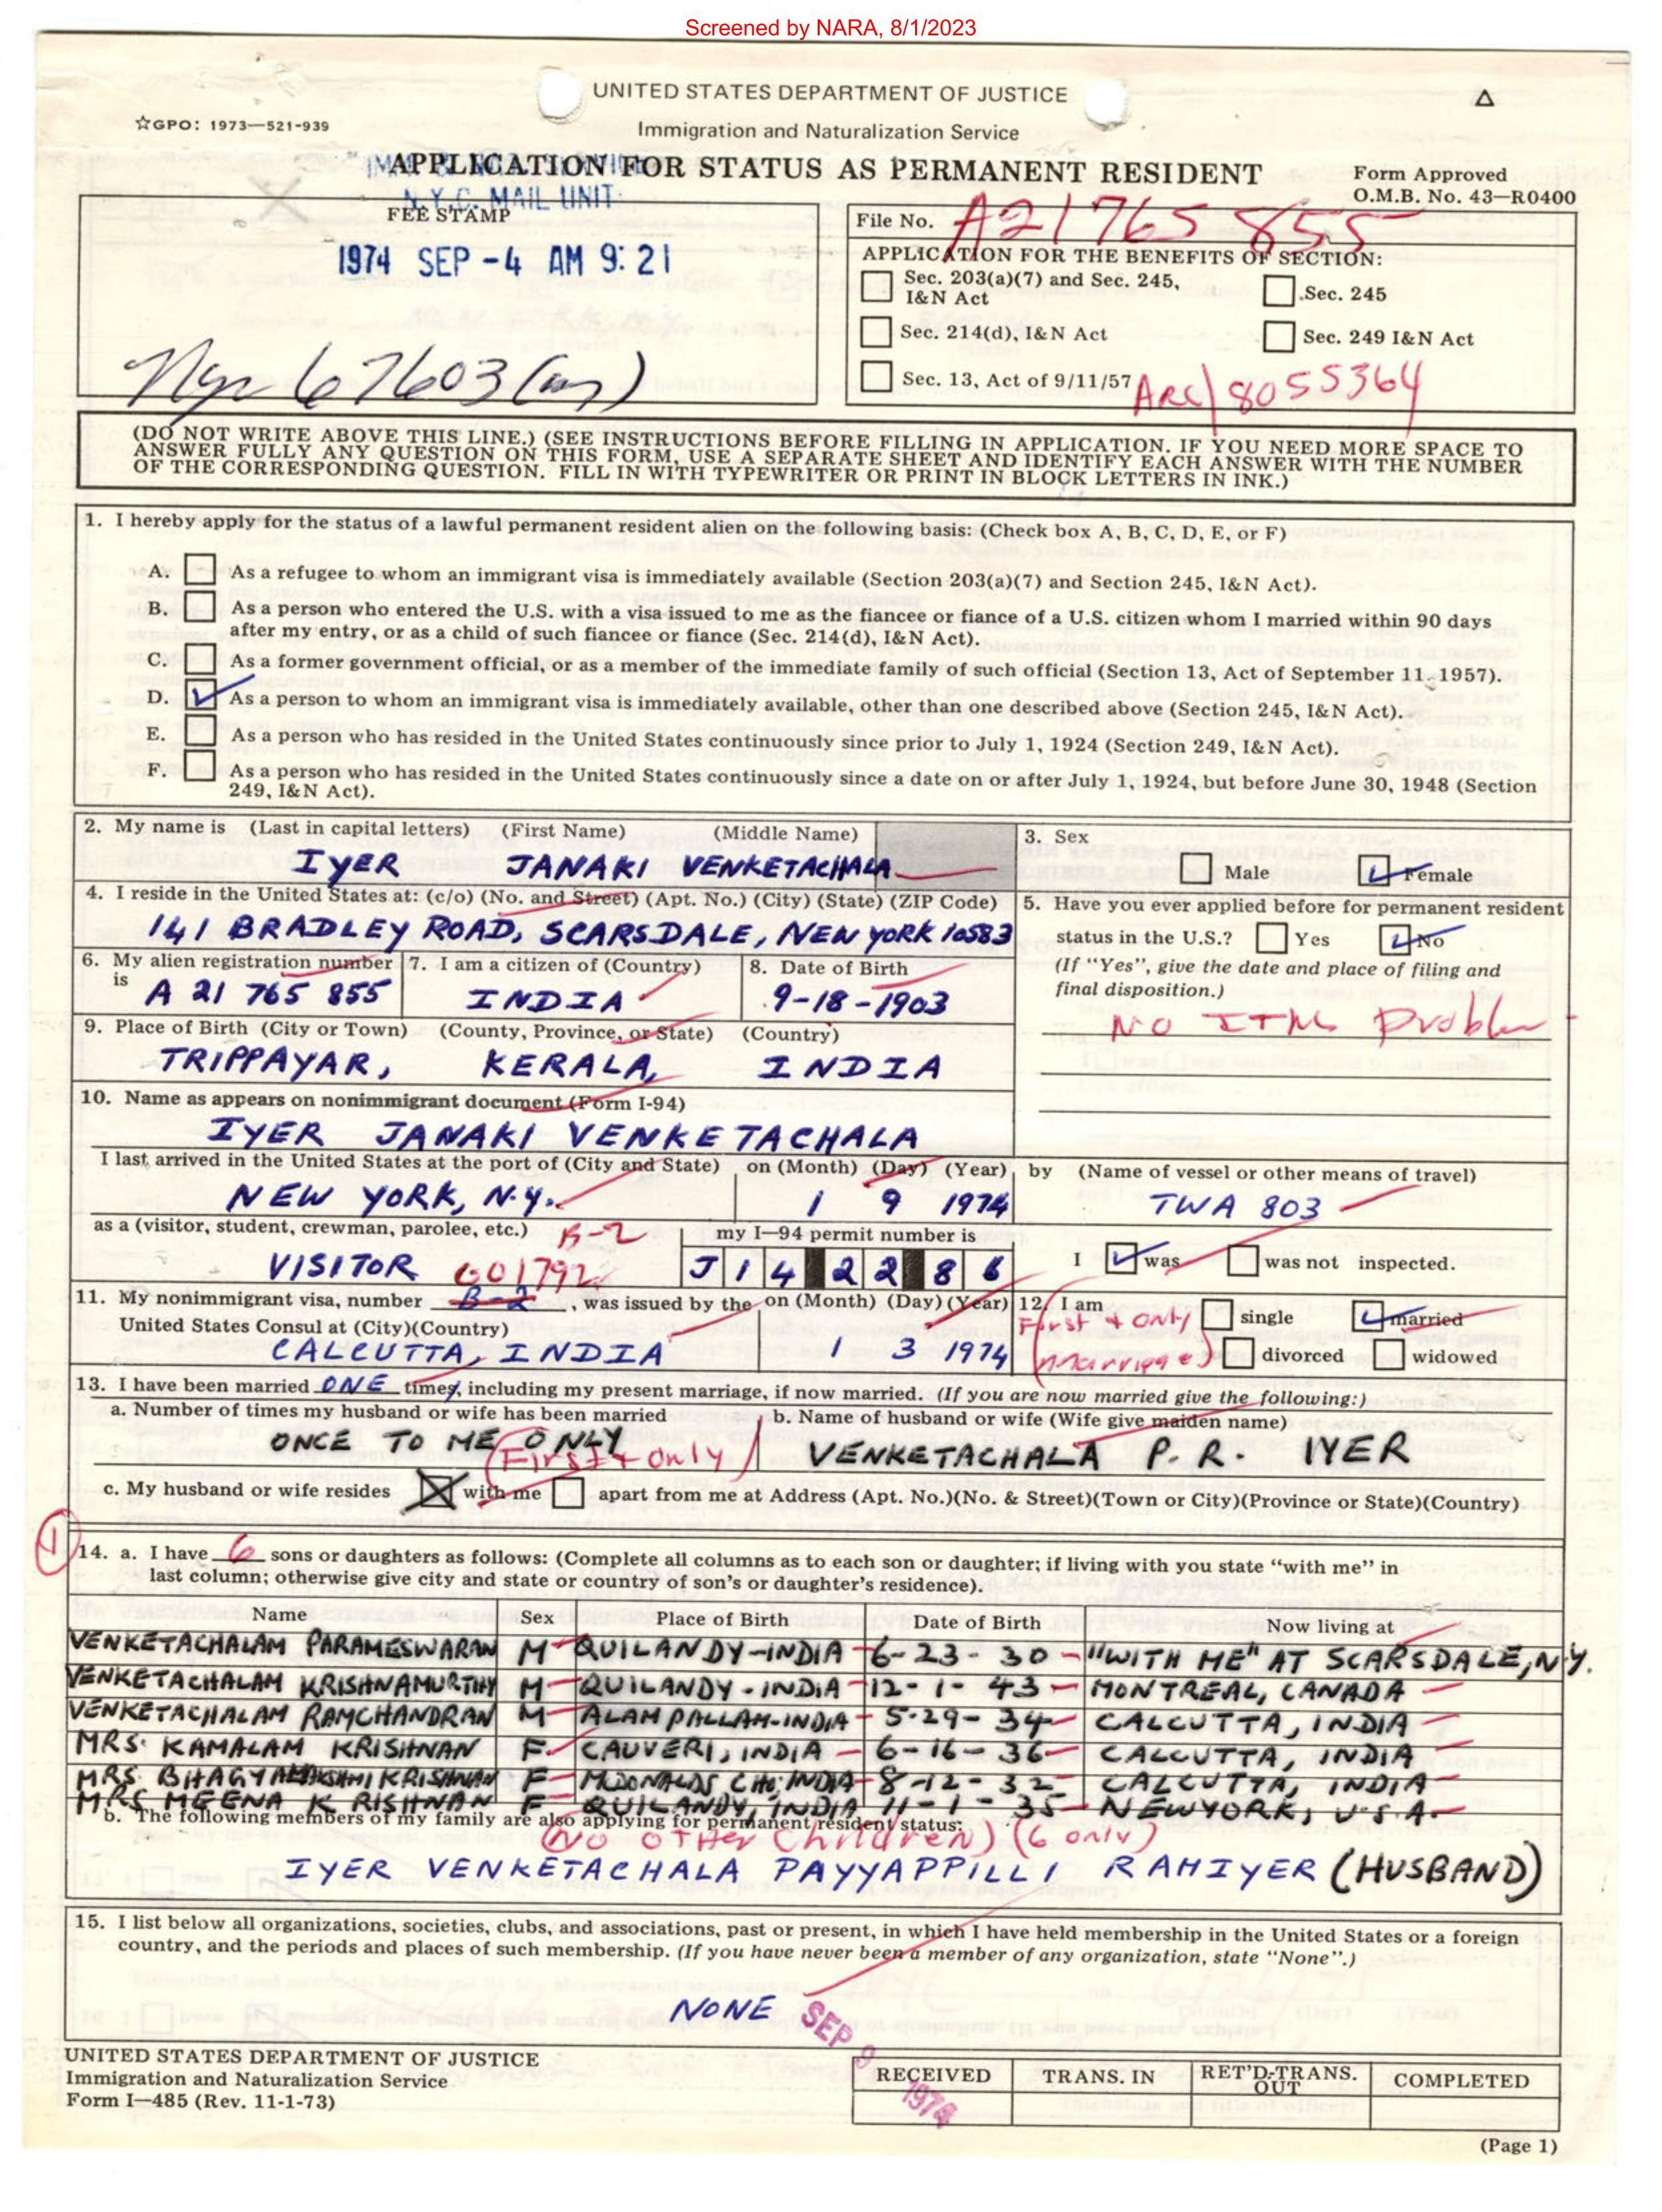 Screened by NARA, 8/1/2023
UNITED STATES DEPARTMENT OF JUSTICE
☆GPO: 1973—521-939
Immigration and Naturalization Service
APPLICATION FOR STATUS AS PERMANENT RESIDENT
N.Y.C. MAIL UNIT
Form Approved
O.M.B. No. 43—R0400
FEE STAMP
1974 SEP -4 AM 9:21
67603
File No. A21765 855
APPLICATION FOR THE BENEFITS OF SECTION:
Sec. 203(a)(7) and Sec. 245, I&N Act
Sec. 245
Sec. 214(d), I&N Act
Sec. 249 I&N Act
Sec. 13, Act of 9/11/57
8055364
(DO NOT WRITE ABOVE THIS LINE.) (SEE INSTRUCTIONS BEFORE FILLING IN APPLICATION. IF YOU NEED MORE SPACE TO
ANSWER FULLY ANY QUESTION ON THIS FORM, USE A SEPARATE SHEET AND IDENTIFY EACH ANSWER WITH THE NUMBER
OF THE CORRESPONDING QUESTION. FILL IN WITH TYPEWRITER OR PRINT IN BLOCK LETTERS IN INK.)
1. I hereby apply for the status of a lawful permanent resident alien on the following basis: (Check box A, B, C, D, E, or F)
A. As a refugee to whom an immigrant visa is immediately available (Section 203(a)(7) and Section 245, I&N Act).
B. As a person who entered the U.S. with a visa issued to me as the fiancee or fiance of a U.S. citizen whom I married within 90 days
after my entry, or as a child of such fiancee or fiance (Sec. 214(d), I&N Act).
C. As a former government official, or as a member of the immediate family of such official (Section 13, Act of September 11, 1957).
D. As a person to whom an immigrant visa is immediately available, other than one described above (Section 245, I&N Act).
E. As a person who has resided in the United States continuously since prior to July 1, 1924 (Section 249, I&N Act).
F. As a person who has resided in the United States continuously since a date on or after July 1, 1924, but before June 30, 1948 (Section
249, I&N Act).
2. My name is (Last in capital letters) (First Name) (Middle Name)
IYER JANAKI VENKETACHALA
3. Sex
Male Female
4. I reside in the United States at: (c/o) (No. and Street) (Apt. No.) (City) (State) (ZIP Code)
141 BRADLEY ROAD, SCARSDALE, NEW YORK 10583
5. Have you ever applied before for permanent resident
status in the U.S.? Yes No
(If "Yes", give the date and place of filing and
final disposition.)
NO ITMS Problem
6. My alien registration number
is A 21 765 855
7. I am a citizen of (Country)
INDIA
8. Date of Birth
9-18-1903
9. Place of Birth (City or Town) (County, Province, or State) (Country)
TRIPPAYAR, KERALA, INDIA
10. Name as appears on nonimmigrant document (Form I-94)
IYER JANAKI VENKETACHALA
I last arrived in the United States at the port of (City and State) on (Month) (Day) (Year) by (Name of vessel or other means of travel)
NEW YORK, N.Y. 1 9 1974 TWA 803
as a (visitor, student, crewman, parolee, etc.) B-2
VISITOR 601792
my I—94 permit number is
J 1 4 2 2 8 6
I was was not inspected.
11. My nonimmigrant visa, number B-2, was issued by the on (Month) (Day) (Year)
United States Consul at (City)(Country)
CALCUTTA, INDIA 1 3 1974
12. I am single married
First + Only
divorced widowed
(marriage)
13. I have been married ONE times, including my present marriage, if now married. (If you are now married give the following:)
a. Number of times my husband or wife has been married
ONCE TO ME ONLY
(First + Only)
b. Name of husband or wife (Wife give maiden name)
VENKETACHALA P. R. IYER
c. My husband or wife resides with me apart from me at Address (Apt. No.)(No. & Street)(Town or City)(Province or State)(Country)
1
14. a. I have 6 sons or daughters as follows: (Complete all columns as to each son or daughter; if living with you state "with me" in
last column; otherwise give city and state or country of son's or daughter's residence).
Name Sex Place of Birth Date of Birth Now living at
VENKETACHALAM PARAMESWARAN M QUILANDY-INDIA 6-23-30 "WITH ME" AT SCARSDALE, N.Y.
VENKETACHALAM KRISHNAMURTHY M QUILANDY-INDIA 12-1-43 MONTREAL, CANADA
VENKETACHALAM RAMCHANDRAN M ALAMPALLAM-INDIA 5-29-34 CALCUTTA, INDIA
MRS. KAMALAM KRISHNAN F CAUVERI, INDIA 6-16-36 CALCUTTA, INDIA
MRS. BHAGYALAKSHMI KRISHNAN F McDONALDS CHO: INDIA 8-12-32 CALCUTTA, INDIA
MRS MEENA KRISHNAN F QUILANDY, INDIA 11-1-35 NEWYORK, U.S.A.
b. The following members of my family are also applying for permanent resident status:
(NO OTHER Children) (6 only)
IYER VENKETACHALA PAYYAPPILLI RAMIYER (HUSBAND)
15. I list below all organizations, societies, clubs, and associations, past or present, in which I have held membership in the United States or a foreign
country, and the periods and places of such membership. (If you have never been a member of any organization, state "None".)
NONE
SEP 9 1974
UNITED STATES DEPARTMENT OF JUSTICE
Immigration and Naturalization Service
Form I—485 (Rev. 11-1-73)
RECEIVED TRANS. IN RET'D-TRANS. OUT COMPLETED
(Page 1)